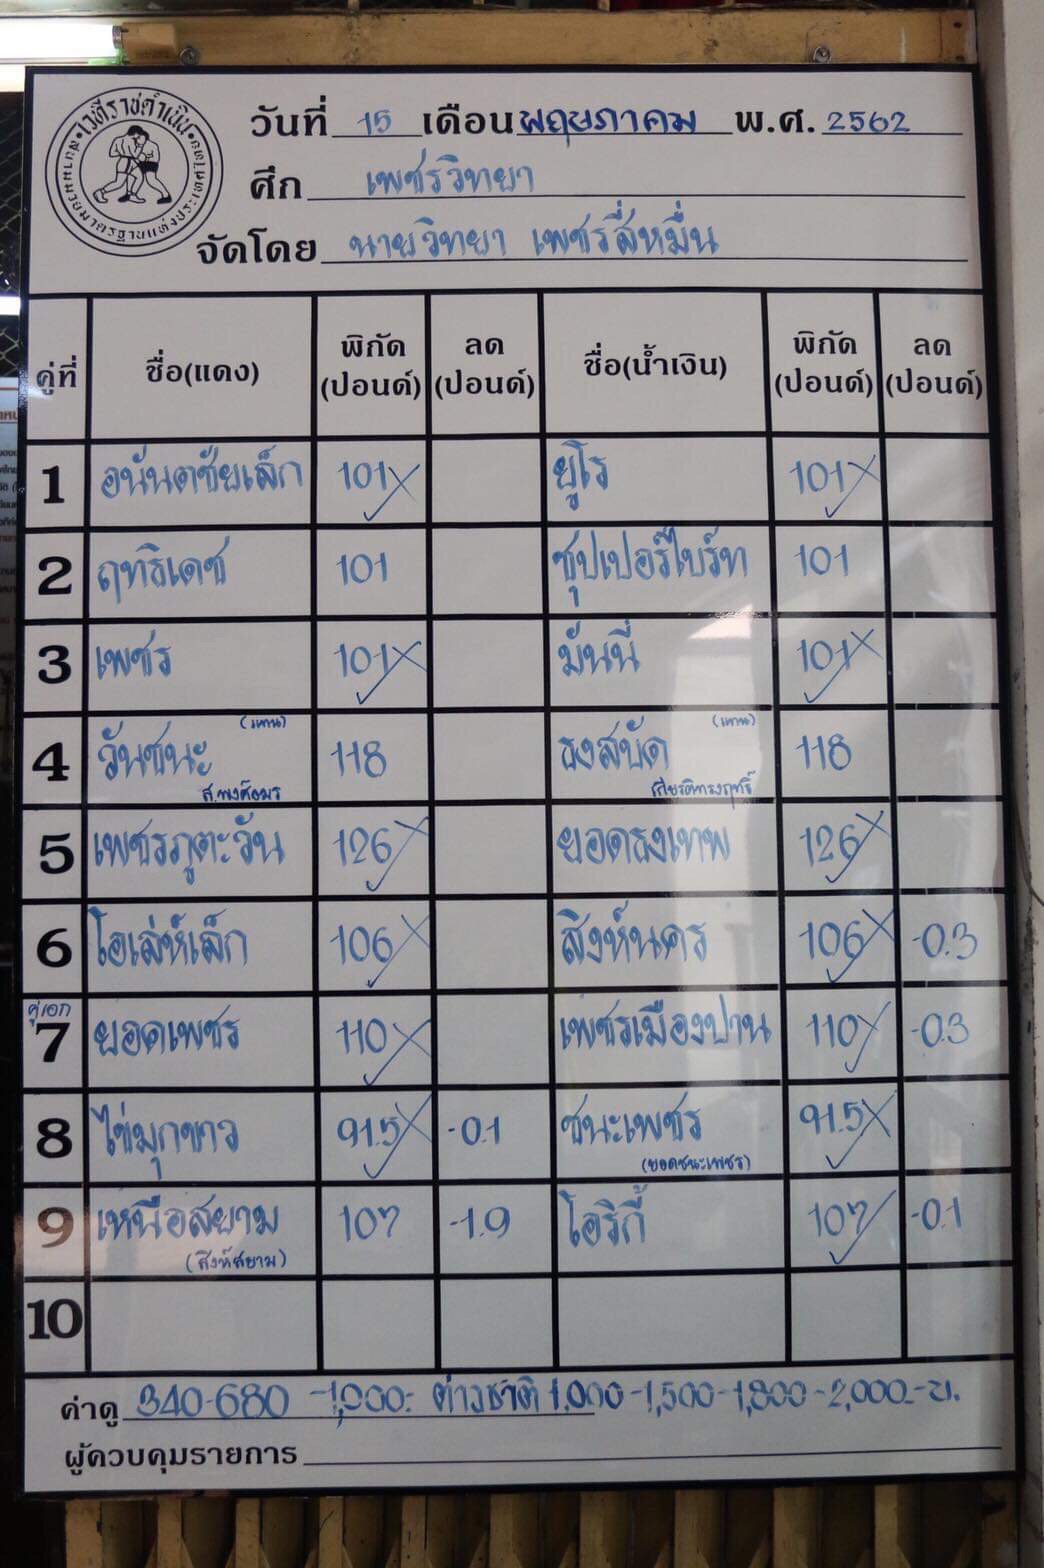 เวทีราชดำเนิน
วันที่ 15 เดือน พฤษภาคม พ.ศ. 2562
ศึก เพชรวิทยา
จัดโดย นายวิทยา เพชรสี่หมื่น
คู่ที่ ชื่อ(แดง) พิกัด (ปอนด์) ลด (ปอนด์) ชื่อ(น้ำเงิน) พิกัด (ปอนด์) ลด (ปอนด์)
1 อนันตชัยเล็ก 101 ยูโร 101
2 ฤทธิเดช 101 ซุปเปอร์ไบร์ท 101
3 เพชร 101 มันนี่ 101
4 วันชนะ (แทน) ส.พงศ์อมร 118 ธงสบัด (แทน) เกียรติทรงฤทธิ์ 118
5 เพชรภูตะวัน 126 ยอดธงเทพ 126
6 โอเล่ห์เล็ก 106 สิงห์นคร 106 -0.3
คู่เอก
7 ยอดเพชร 110 เพชรเมืองปาน 110 -0.3
8 ไข่มุกขาว 91.5 -0.1 ชนะเพชร (ยอดชนะเพชร) 91.5
9 เหนือสยาม (สิงห์สยาม) 107 -1.9 โอริกี้ 107 -0.1
10
ค่าดู 340-680 -1,000.- ต่างชาติ 1,000-1,500-1,800-2,000.-บ.
ผู้ควบคุมรายการ